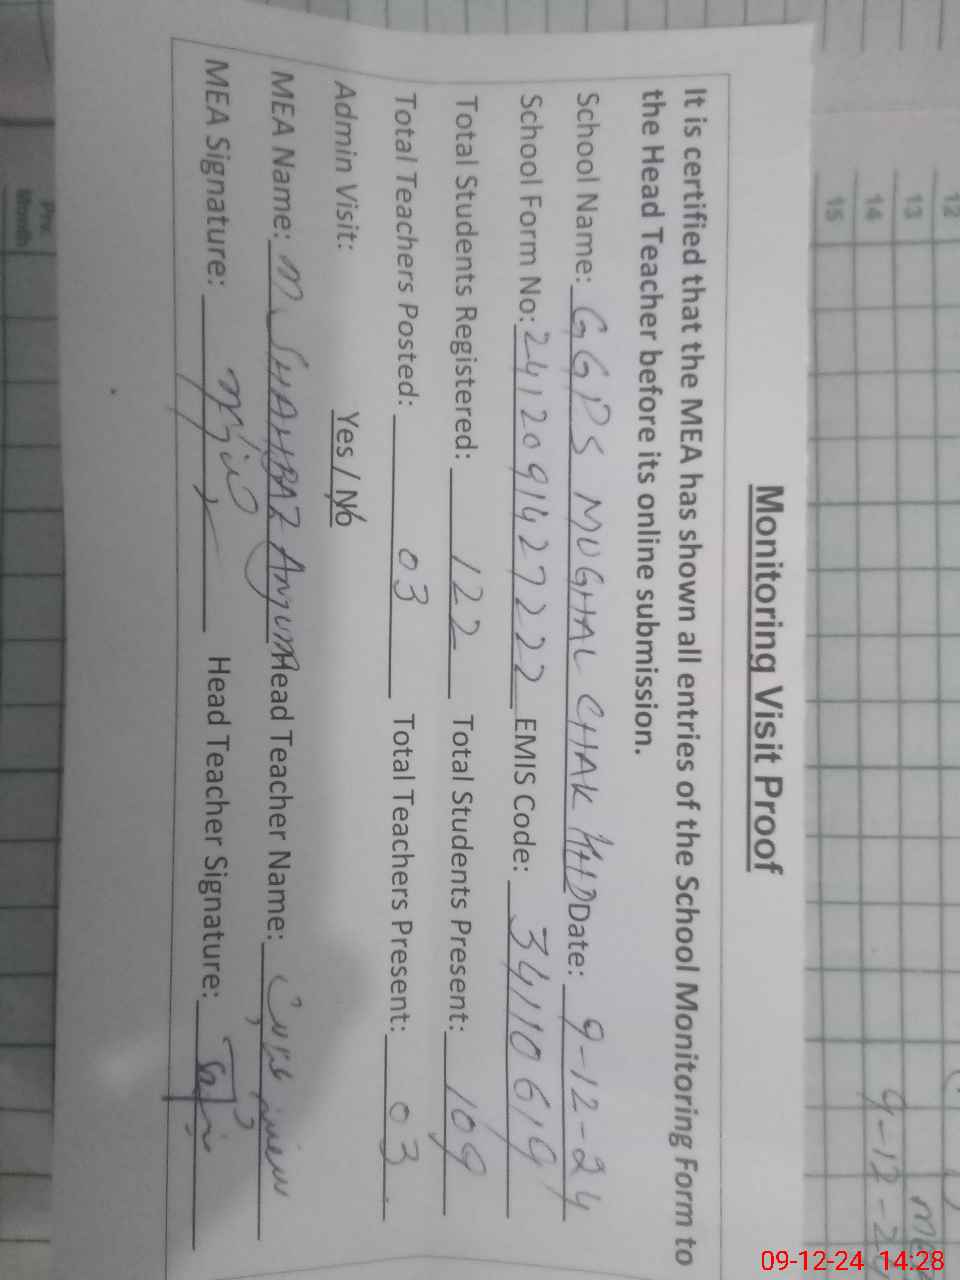 Monitoring Visit Proof
It is certified that the MEA has shown all entries of the School Monitoring Form to
the Head Teacher before its online submission.
School Name: GGPS MUGHAL CHAK KHD Date: 9-12-24
School Form No: 241209142 7222 EMIS Code: 34110619
Total Students Registered: 122 Total Students Present: 109
Total Teachers Posted: 03 Total Teachers Present: 03
Admin Visit: Yes / No
MEA Name: M SHAHBAZ Anjum Head Teacher Name:
MEA Signature: Head Teacher Signature:
12
13
14
15
9-12-24
Prv.
Month
09-12-24 14:28